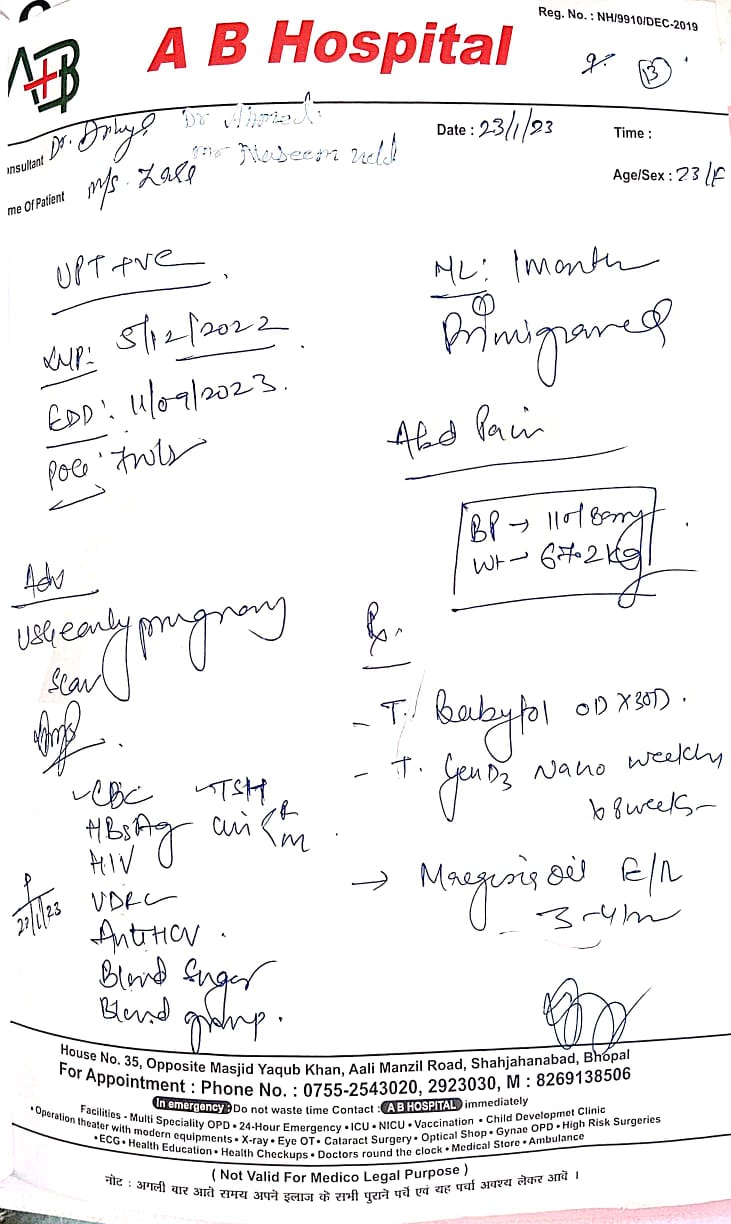 Reg. No. : NH/9910/DEC-2019
A B Hospital
13
Consultant Dr.
Dr Ahmed
Date : 23/1/23
Time :
Name Of Patient M/s.
Naseem
Age/Sex : 23/F
UPT +ve
LMP: 5/12/2022
EDD: 11/09/2023.
POG: 7wks
ML: 1 month
Primigraved
Abd Pain
BP → 110/80mmg
Wt - 67.2 kg
Adv
USG early pregnancy
scan
CBC TSH
HBsAg
HIV
VDRL
Anti HCV
Blood Sugar
Blood group.
Rx.
- T. Babyfol OD X30D.
- T. Gen D3 Nano weekly
8 weeks
→ oil E/R
3-4/m
House No. 35, Opposite Masjid Yaqub Khan, Aali Manzil Road, Shahjahanabad, Bhopal
For Appointment : Phone No. : 0755-2543020, 2923030, M : 8269138506
In emergency : Do not waste time Contact : A B HOSPITAL immediately
Facilities - Multi Speciality OPD • 24-Hour Emergency • ICU • NICU • Vaccination • Child Developmet Clinic
• Operation theater with modern equipments • X-ray • Eye OT • Cataract Surgery • Optical Shop • Gynae OPD • High Risk Surgeries
• ECG • Health Education • Health Checkups • Doctors round the clock • Medical Store • Ambulance
( Not Valid For Medico Legal Purpose )
नोट : अगली बार आते समय अपने इलाज के सभी पुराने पर्चे एवं यह पर्चा अवश्य लेकर आवें ।